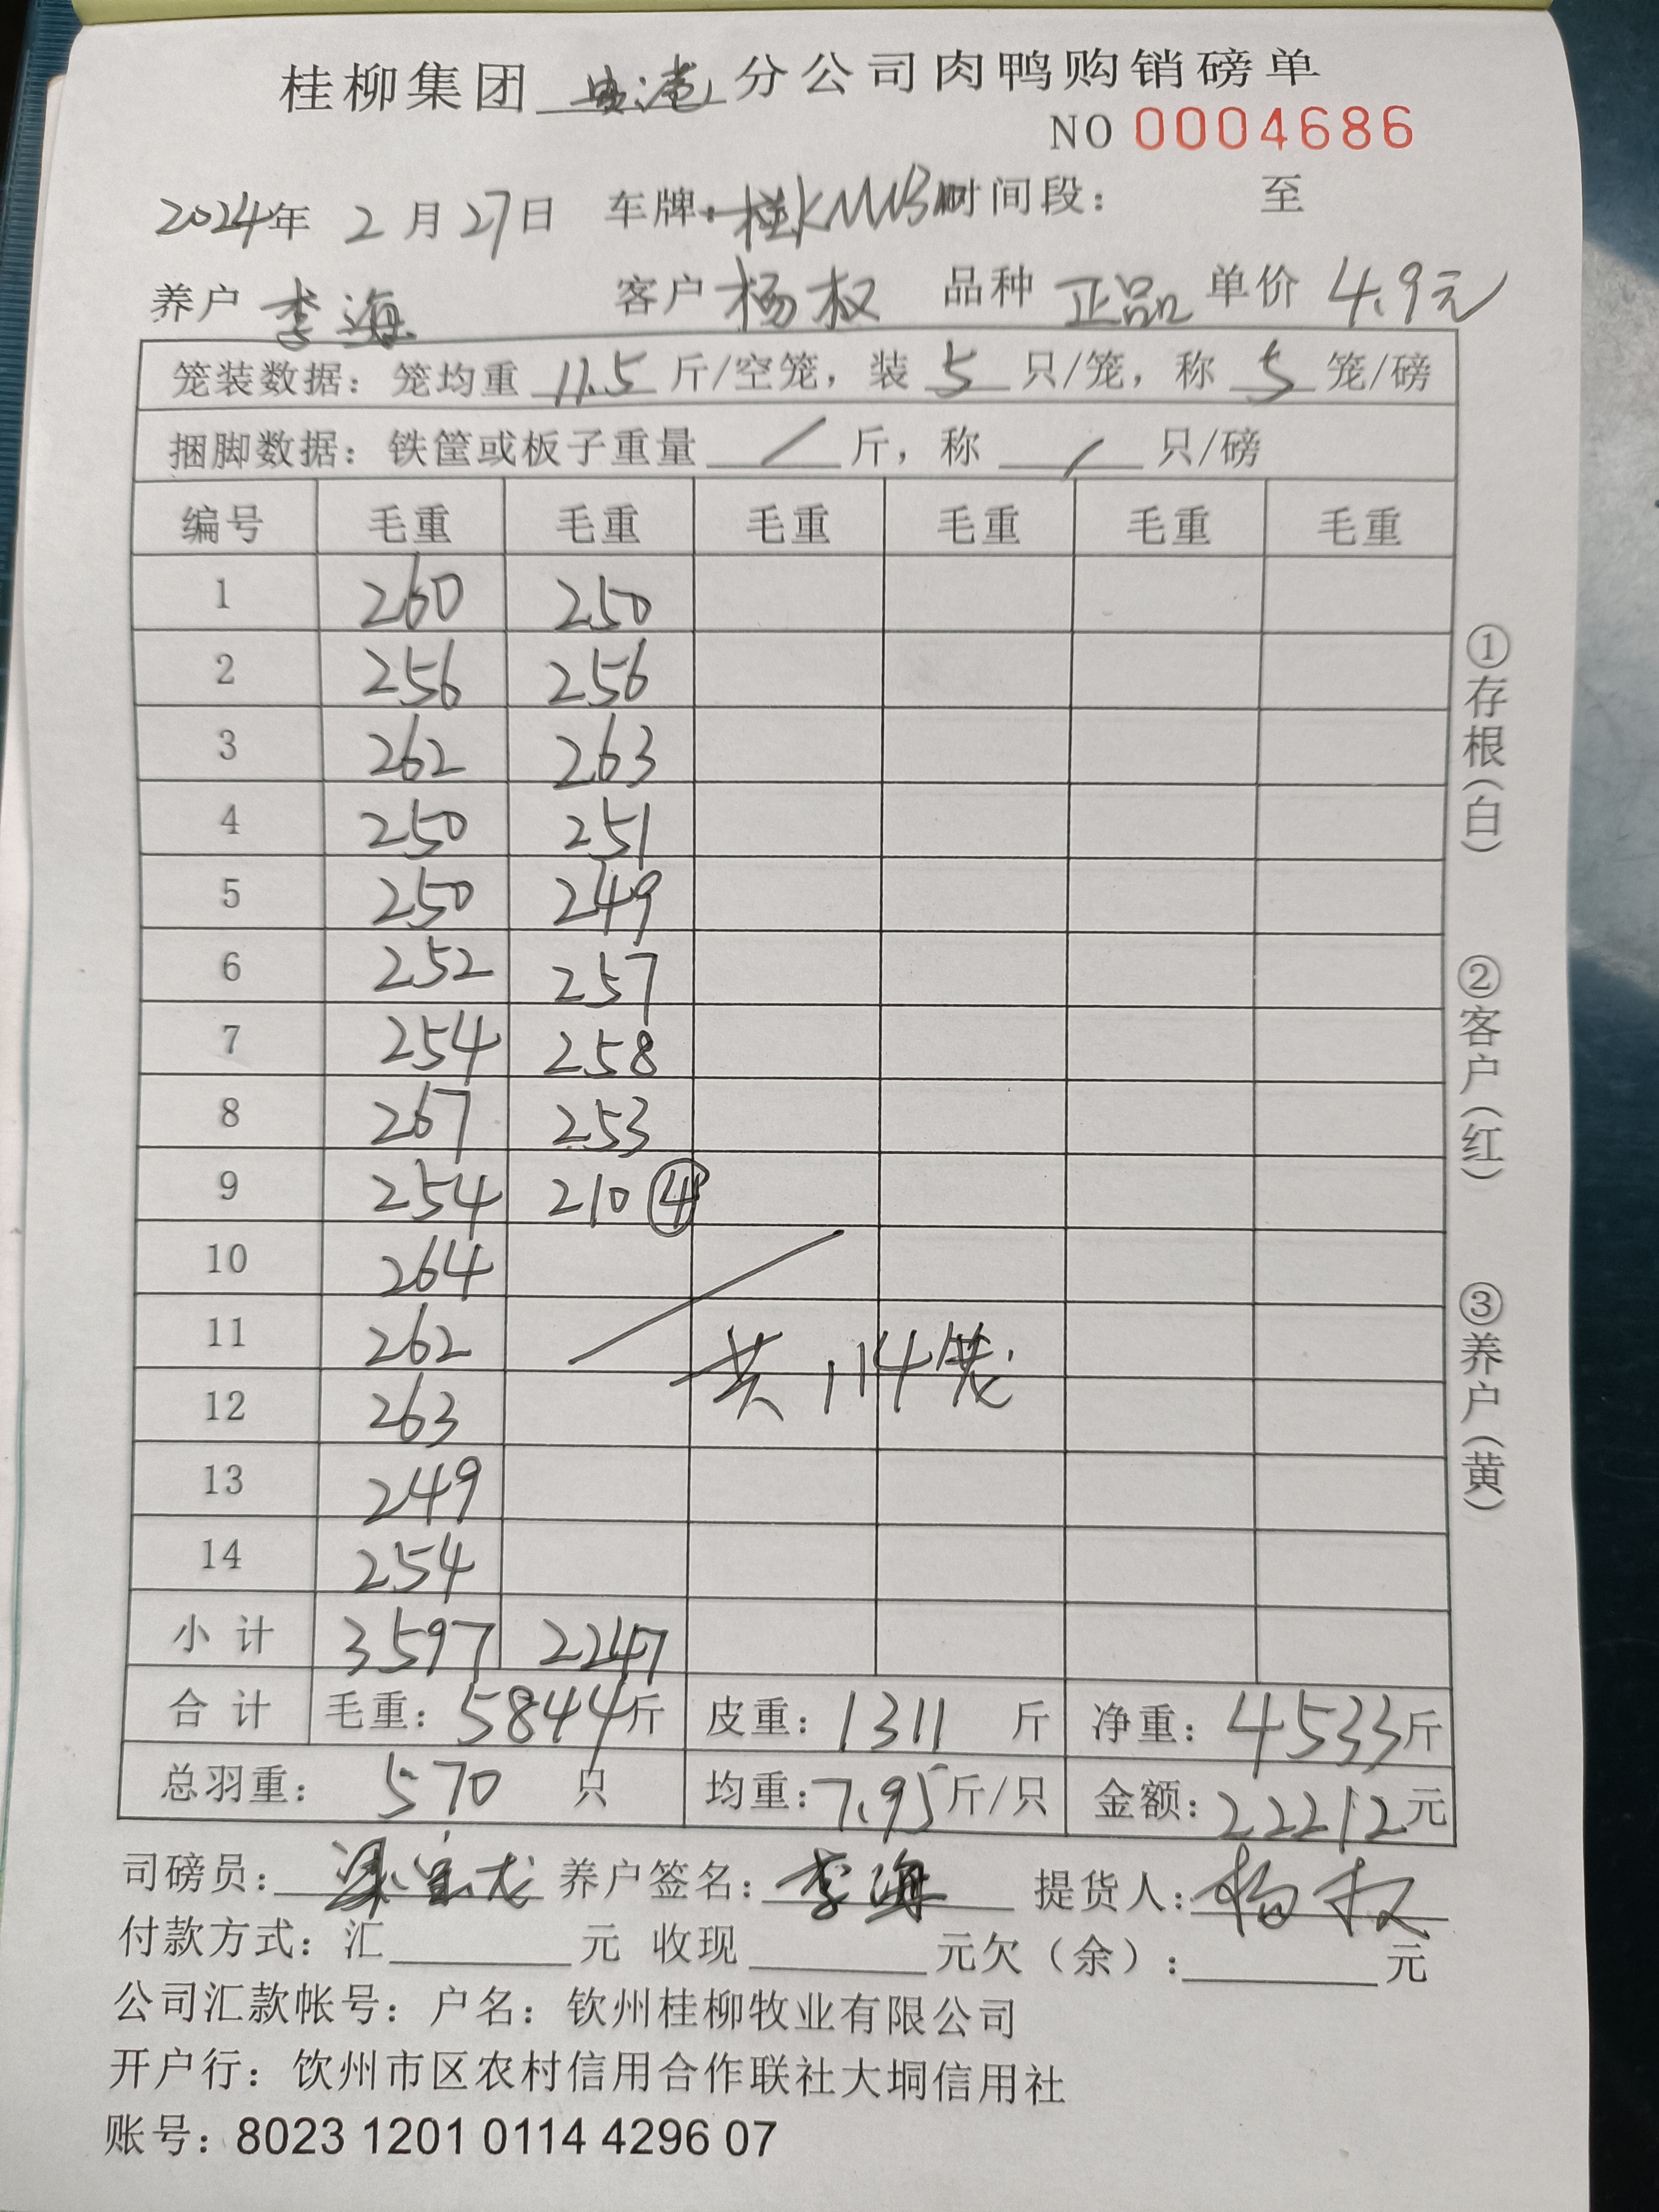 桂柳集团 贵港 分公司肉鸭购销磅单
NO 0004686
2024年 2月27日 车牌: 时间段: 至
养户 李海 客户 杨权 品种 正品 单价 4.9元
笼装数据: 笼均重 11.5 斤/空笼, 装 5 只/笼, 称 5 笼/磅
捆脚数据: 铁筐或板子重量 / 斤, 称 / 只/磅
编号 毛重 毛重 毛重 毛重 毛重 毛重
1 260 250
2 256 256
3 262 263
4 250 251
5 250 249
6 252 257
7 254 258
8 267 253
9 254 210 ④
10 264
11 262
共114笼
12 263
13 249
14 254
小计 3597 2247
合计 毛重: 5844斤 皮重: 1311 斤 净重: 4533斤
总羽重: 570 只 均重: 7.95斤/只 金额: 22212元
司磅员: 养户签名: 李海 提货人: 杨权
付款方式: 汇 元 收现 元欠(余): 元
公司汇款帐号: 户名: 钦州桂柳牧业有限公司
开户行: 钦州市区农村信用合作联社大垌信用社
账号: 8023 1201 0114 4296 07
①存根(白)
②客户(红)
③养户(黄)